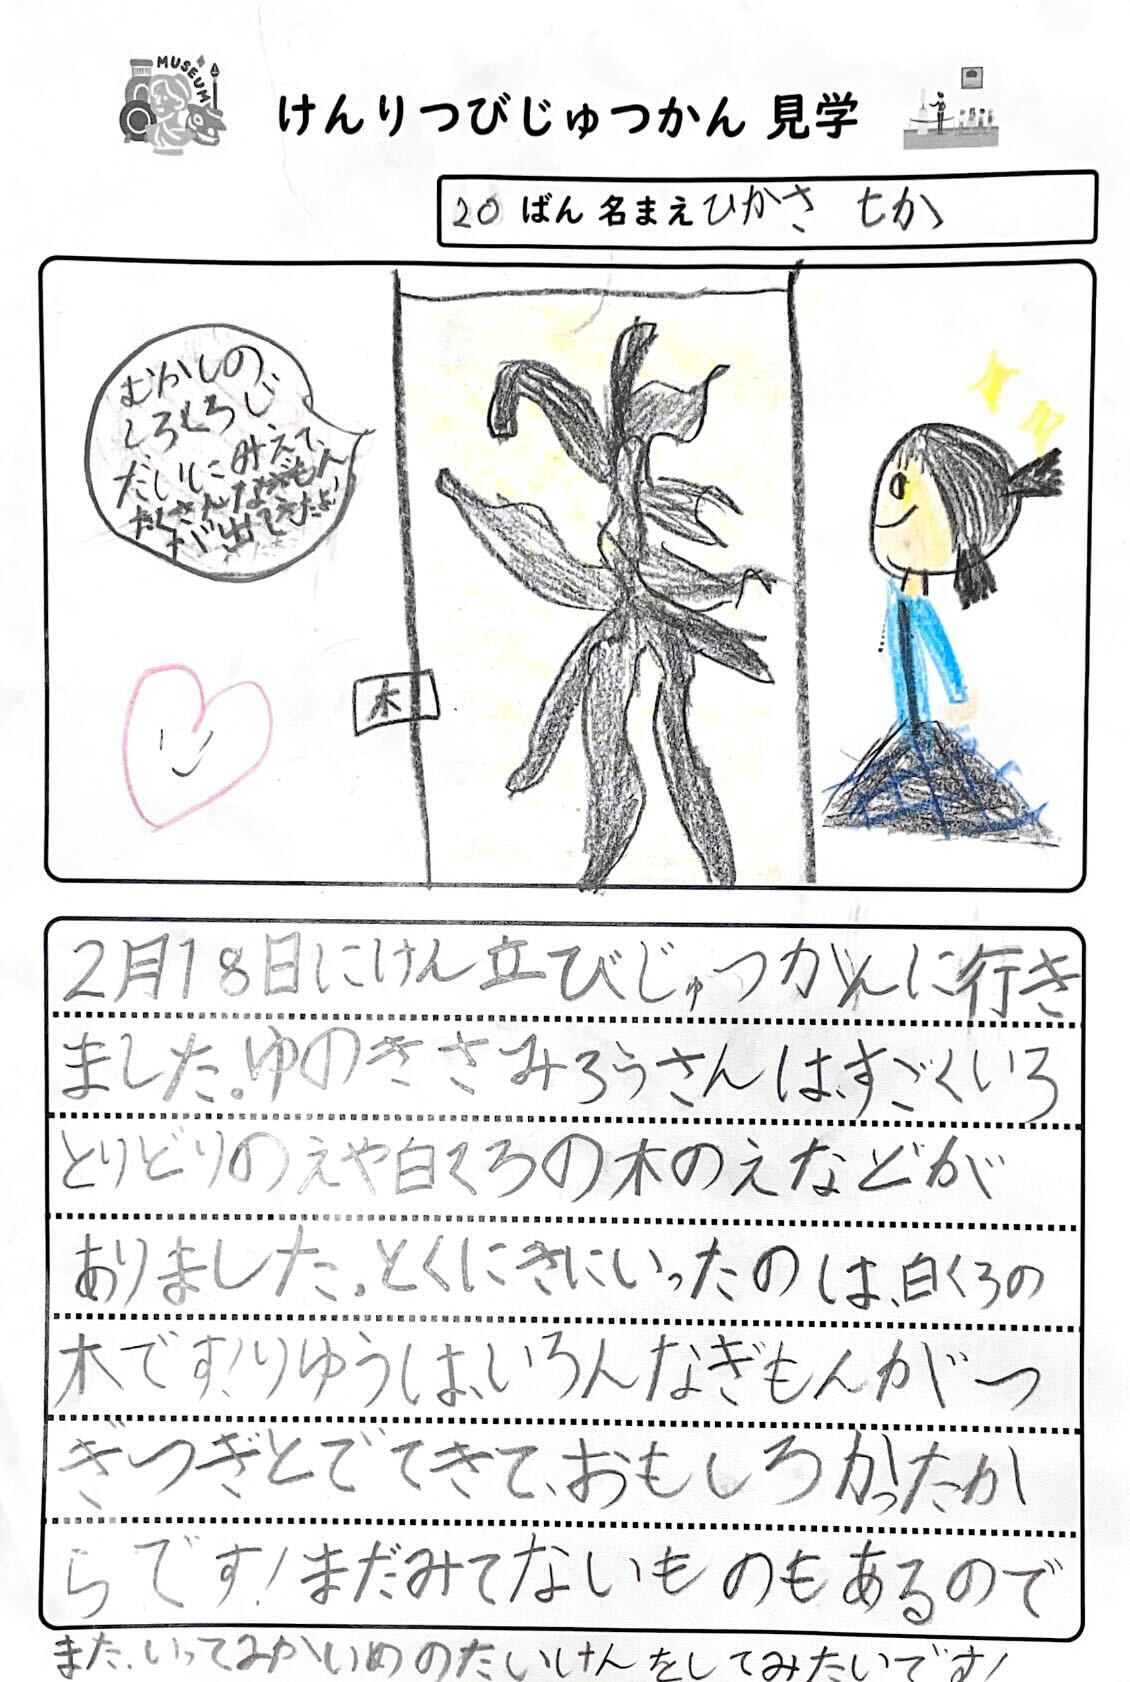 MUSEUM
けんりつびじゅつかん 見学
20 ばん 名まえ ひかさ せか
むかしの、
しろくろじ
だいにみえて、
たくさんなぎもん
が出てきたよ!
木
2月18日にけん立びじゅつかんに行き
ました。ゆのきさみろうさんは、すごくいろ
とりどりのえや白くろの木のえなどが
ありました。とくにきにいったのは、白くろの
木です!りゆうは、いろんなぎもんがつ
ぎつぎとでてきて、おもしろかったか
らです!まだみてないものもあるので
また、いってみかいめのたいけんをしてみたいです!